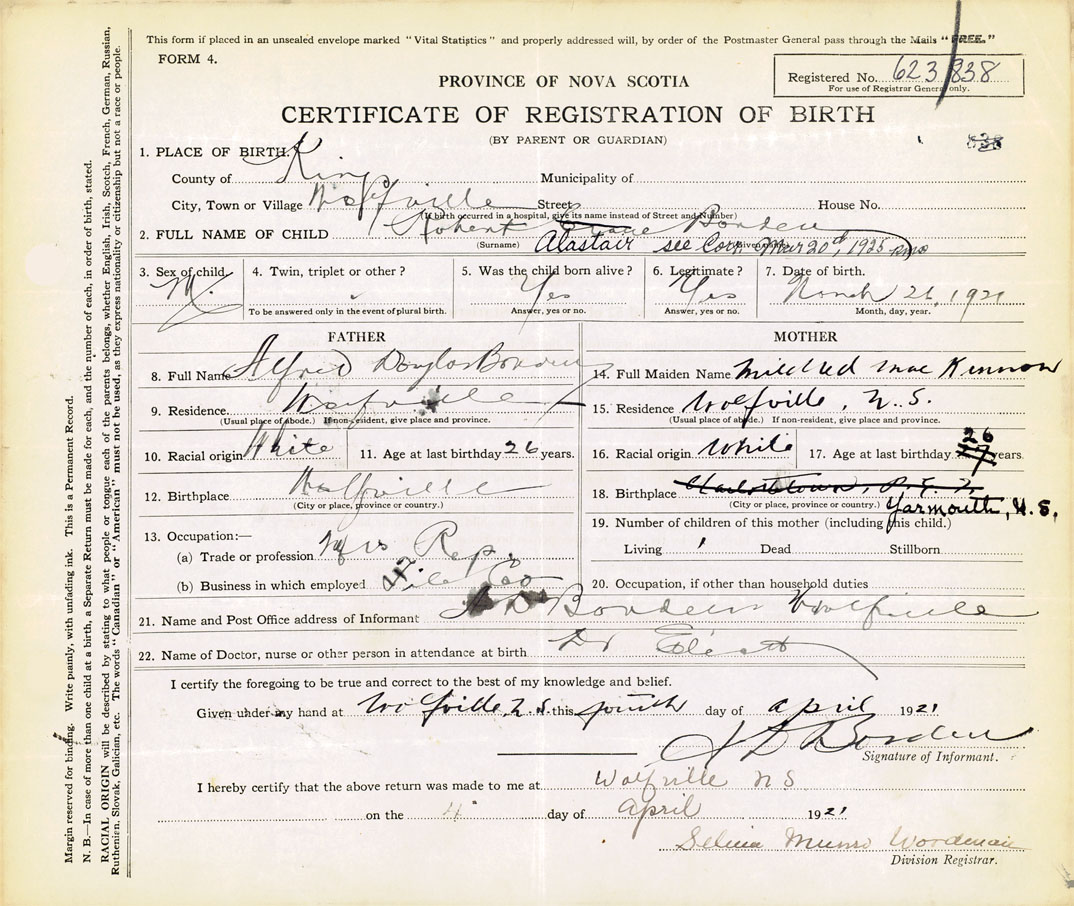 This form if placed in an unsealed envelope marked "Vital Statistics" and properly addressed will, by order of the Postmaster General pass through the Mails "FREE."
FORM 4.
Registered No. 623838
For use of Registrar General only.
PROVINCE OF NOVA SCOTIA
CERTIFICATE OF REGISTRATION OF BIRTH
(BY PARENT OR GUARDIAN)
1. PLACE OF BIRTH.
County of Kings Municipality of
City, Town or Village Wolfville Street House No.
(If birth occurred in a hospital, give its name instead of Street and Number)
2. FULL NAME OF CHILD Robert Borden
(Surname) Alastair see Corr Mar 20, 1925
3. Sex of child. M. 4. Twin, triplet or other? 5. Was the child born alive? Yes 6. Legitimate? Yes 7. Date of birth. March 26, 1921
To be answered only in the event of plural birth. Answer, yes or no. Answer, yes or no. Month, day, year.
FATHER MOTHER
8. Full Name Alfred Douglas Borden 14. Full Maiden Name Mildred Mac Kinnon
9. Residence. Wolfville 15. Residence Wolfville, N.S.
(Usual place of abode.) If non-resident, give place and province. (Usual place of abode.) If non-resident, give place and province.
10. Racial origin White 11. Age at last birthday 26 years. 16. Racial origin White 17. Age at last birthday 26 years.
12. Birthplace Wolfville 18. Birthplace Charlottetown, P.E.I. Yarmouth, N.S.
(City or place, province or country.) (City or place, province or country.)
13. Occupation:— 19. Number of children of this mother (including this child.)
(a) Trade or profession Mfrs Rep. Living 1 Dead Stillborn
(b) Business in which employed Co 20. Occupation, if other than household duties
21. Name and Post Office address of Informant A D Borden Wolfville
22. Name of Doctor, nurse or other person in attendance at birth Dr Elliott
I certify the foregoing to be true and correct to the best of my knowledge and belief.
Given under my hand at Wolfville, N.S. this fourth day of april 1921
Borden
Signature of Informant.
I hereby certify that the above return was made to me at Wolfville N S
on the 4 day of april 1921
Selina Munro Woodman
Division Registrar.
Margin reserved for binding. Write plainly, with unfading ink. This is a Permanent Record.
N. B.—In case of more than one child at a birth, a Separate Return must be made for each, and the number of each, in order of birth, stated.
RACIAL ORIGIN will be described by stating to what people or tongue each of the parents belongs, whether English, Irish, Scotch, French, German, Russian,
Ruthenien, Slovak, Galician, etc. The words "Canadian" or "American" must not be used, as they express nationality or citizenship but not a race or people.